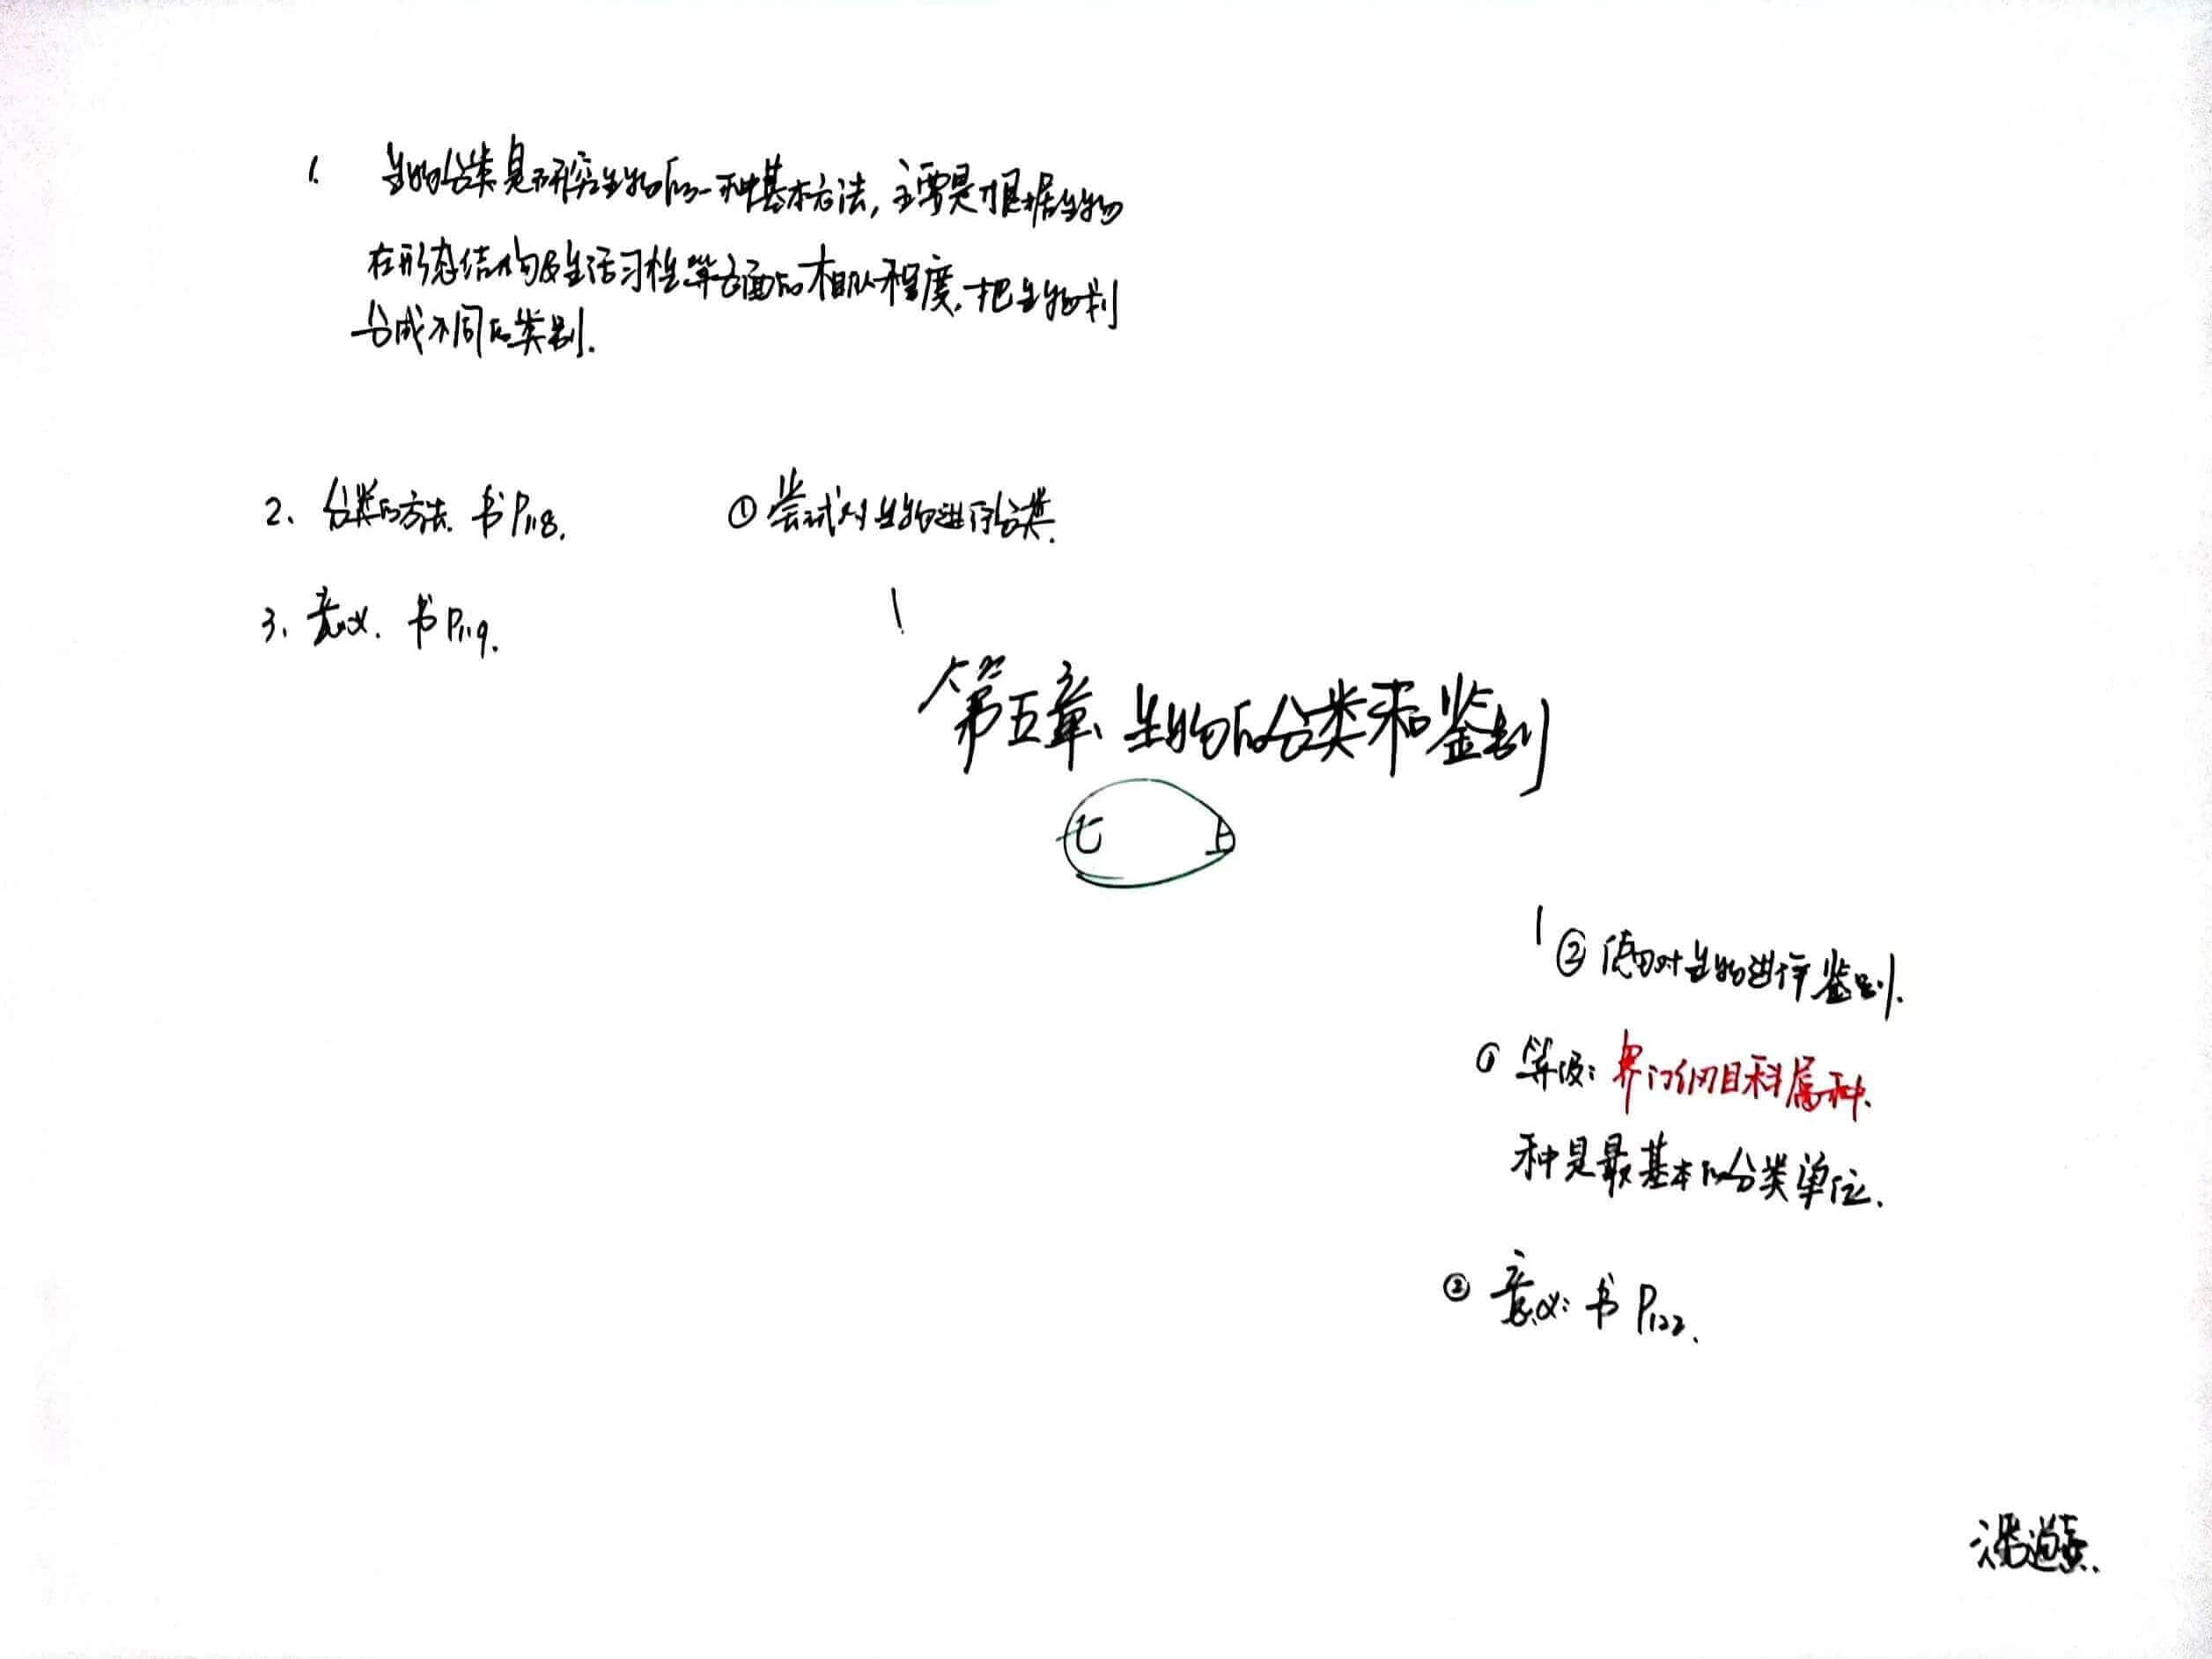 1. 生物分类是研究生物的一种基本方法,主要是根据生物
在形态结构及生活习性等方面的相似程度,把生物划
分成不同的类别.
2、分类的方法. 书P118.
① 尝试对生物进行分类.
3、意义. 书P119.
第五章、生物的分类和鉴别
七 上
② 对生物进行鉴别.
① 等级:界门纲目科属种.
种是最基本的分类单位.
② 意义:书P122.